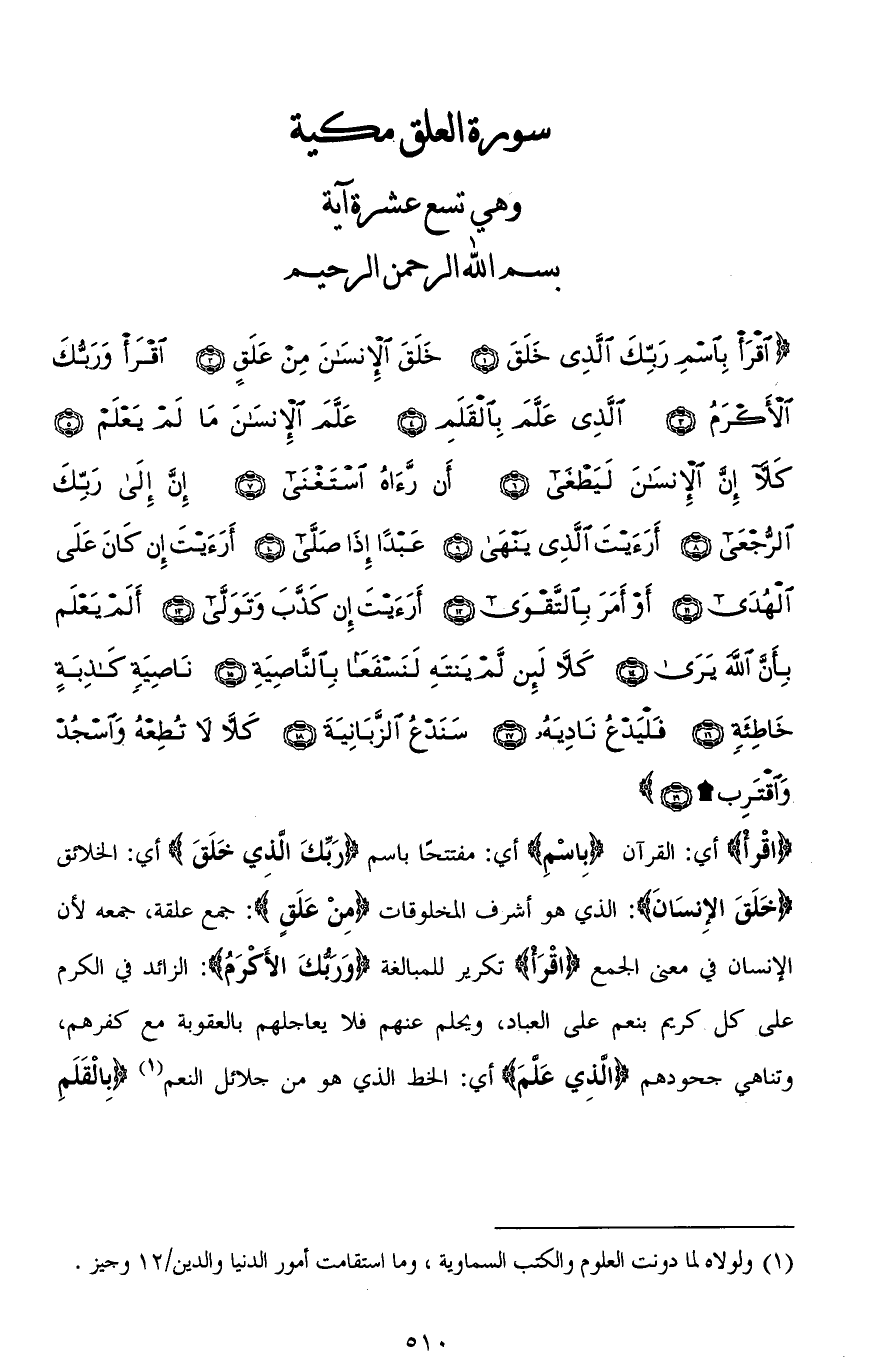 سورة العلق مكية
وهي تسع عشرة آية
بسم الله الرحمن الرحيم
﴿ٱقْرَأْ بِٱسْمِ رَبِّكَ ٱلَّذِى خَلَقَ ۝١ خَلَقَ ٱلْإِنسَـٰنَ مِنْ عَلَقٍ ۝٢ ٱقْرَأْ وَرَبُّكَ
ٱلْأَكْرَمُ ۝٣ ٱلَّذِى عَلَّمَ بِٱلْقَلَمِ ۝٤ عَلَّمَ ٱلْإِنسَـٰنَ مَا لَمْ يَعْلَمْ ۝٥
كَلَّآ إِنَّ ٱلْإِنسَـٰنَ لَيَطْغَىٰٓ ۝٦ أَن رَّءَاهُ ٱسْتَغْنَىٰٓ ۝٧ إِنَّ إِلَىٰ رَبِّكَ
ٱلرُّجْعَىٰٓ ۝٨ أَرَءَيْتَ ٱلَّذِى يَنْهَىٰ ۝٩ عَبْدًا إِذَا صَلَّىٰٓ ۝١٠ أَرَءَيْتَ إِن كَانَ عَلَى
ٱلْهُدَىٰٓ ۝١١ أَوْ أَمَرَ بِٱلتَّقْوَىٰٓ ۝١٢ أَرَءَيْتَ إِن كَذَّبَ وَتَوَلَّىٰٓ ۝١٣ أَلَمْ يَعْلَم
بِأَنَّ ٱللَّهَ يَرَىٰ ۝١٤ كَلَّا لَئِن لَّمْ يَنتَهِ لَنَسْفَعًۢا بِٱلنَّاصِيَةِ ۝١٥ نَاصِيَةٍ كَـٰذِبَةٍ
خَاطِئَةٍ ۝١٦ فَلْيَدْعُ نَادِيَهُۥ ۝١٧ سَنَدْعُ ٱلزَّبَانِيَةَ ۝١٨ كَلَّا لَا تُطِعْهُ وَٱسْجُدْ
وَٱقْتَرِب ۩ ۝١٩﴾
﴿اقْرأْ﴾ أي: القرآن ﴿بِاسْمِ﴾ أي: مفتتحًا باسم ﴿رَبِّكَ الَّذِي خَلَقَ﴾ أي: الخلائق
﴿خَلَقَ الإِنسَانَ﴾: الذي هو أشرف المخلوقات ﴿مِنْ عَلَقٍ﴾: جمع علقة، جمعه لأن
الإنسان في معنى الجمع ﴿اقْرَأْ﴾ تكرير للمبالغة ﴿وَرَبُّكَ الأَكْرَمُ﴾: الزائد في الكرم
على كل كريم بنعم على العباد، ويحلم عنهم فلا يعاجلهم بالعقوبة مع كفرهم،
وتناهي جحودهم ﴿الَّذِي عَلَّمَ﴾ أي: الخط الذي هو من جلائل النعم(١) ﴿بِالْقَلَمِ
(١) ولولاه لما دونت العلوم والكتب السماوية ، وما استقامت أمور الدنيا والدين/١٢ وجيز .
٥١٠